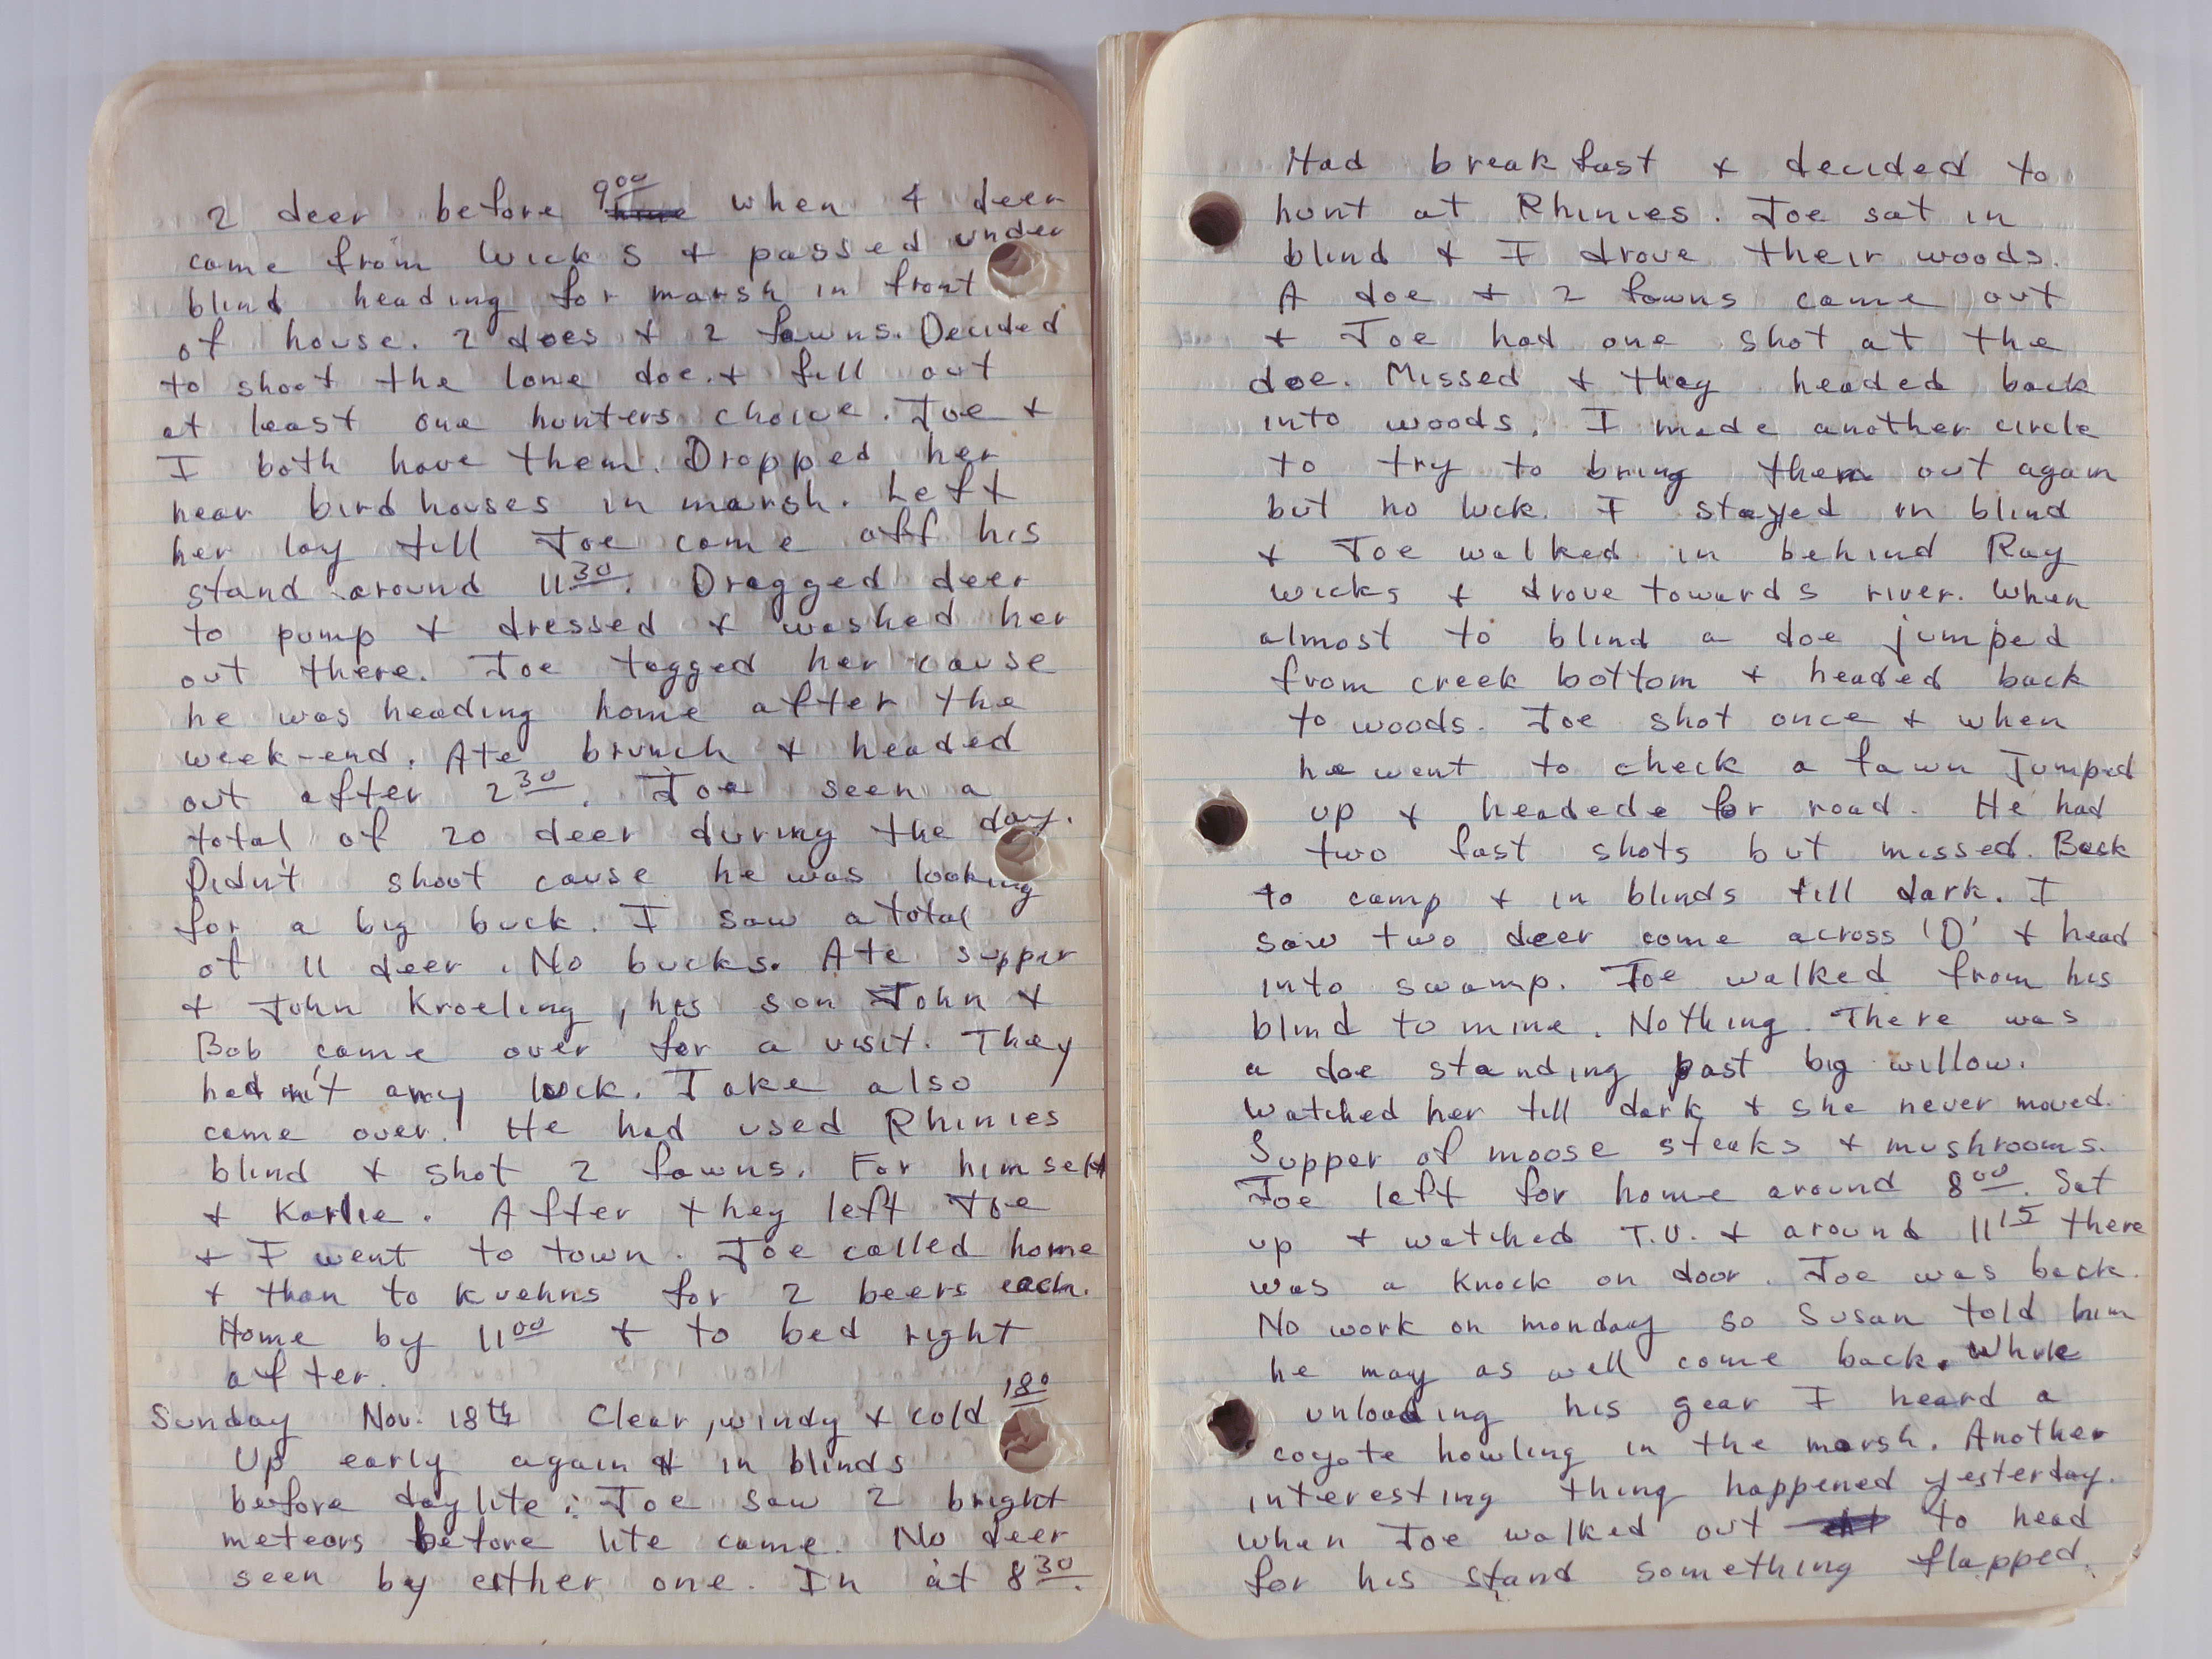 2 deer before 9⁰⁰ when 4 deer
come from Wicks & passed under
blind heading for marsh in front
of house. 2 does & 2 fawns. Decided
to shoot the lone doe. & fill out
at least one hunters choice. Joe &
I both have them. Dropped her
near bird houses in marsh. Left
her lay till Joe come off his
stand around 11³⁰. Dragged deer
to pump & dressed & washed her
out there. Joe tagged her cause
he was heading home after the
week-end. Ate brunch & headed
out after 2³⁰. Joe seen a
total of 20 deer during the day.
Didn't shoot cause he was looking
for a big buck. I saw a total
of 11 deer. No bucks. Ate supper
& John Kroeling, his son John &
Bob come over for a visit. They
had n't any luck. Jake also
come over. He had used Rhinies
blind & shot 2 fawns. For himself
& Karlie. After they left Joe
& I went to town. Joe called home
& than to Kuehns for 2 beers each.
Home by 11⁰⁰ & to bed right
after.
Sunday Nov. 18th Clear, windy & cold 18°
Up early again & in blinds
before daylite. Joe saw 2 bright
meteors before lite came. No deer
seen by either one. In at 8³⁰.
Had breakfast & decided to
hunt at Rhinies. Joe sat in
blind & I drove their woods.
A doe & 2 fawns came out
& Joe had one shot at the
doe. Missed & they headed back
into woods. I made another circle
to try to bring them out again
but no luck. I stayed in blind
& Joe walked in behind Ray
Wicks & drove towards river. When
almost to blind a doe jumped
from creek bottom & headed back
to woods. Joe shot once & when
he went to check a fawn jumped
up & headede for road. He had
two fast shots but missed. Back
to camp & in blinds till dark. I
saw two deer come across 'D' & head
into swamp. Joe walked from his
blind to mine. Nothing. There was
a doe standing past big willow.
Watched her till dark & she never moved.
Supper of moose steaks & mushrooms.
Joe left for home around 8⁰⁰. Sat
up & watched T.V. & around 11¹⁵ there
was a knock on door. Joe was back.
No work on monday so Susan told him
he may as well come back. While
unloading his gear I heard a
coyote howling in the marsh. Another
interesting thing happened yesterday.
When Joe walked out to head
for his stand something flapped.